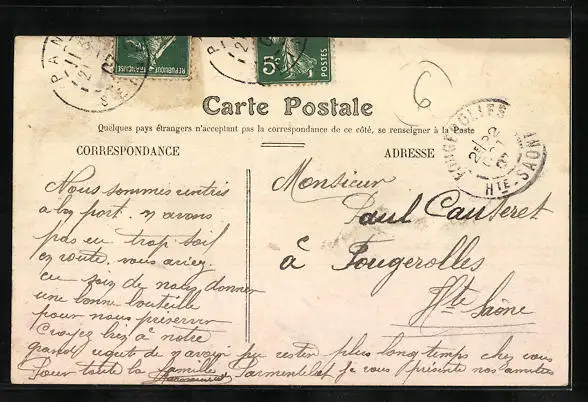 REPUBLIQUE FRANÇAISE
5c POSTES
6
Carte Postale
Quelques pays étrangers n'acceptant pas la correspondance de ce côté, se renseigner à la Poste
CORRESPONDANCE
ADRESSE
FOUGEROLLES
Hte SAONE
Nous sommes rentrés
a bon port. n'avons
pas eu trop soif
en route. vous aviez
eu soin de nous donner
une bonne bouteille
pour nous préserver
Croyez bien à notre
grand regrets de n'avoir pu rester plus longtemps chez vous
Pour toute la famille Parmentelat je vous présente nos amitiés
Monsieur
Paul Causeret
à Fougerolles
Hte Saône